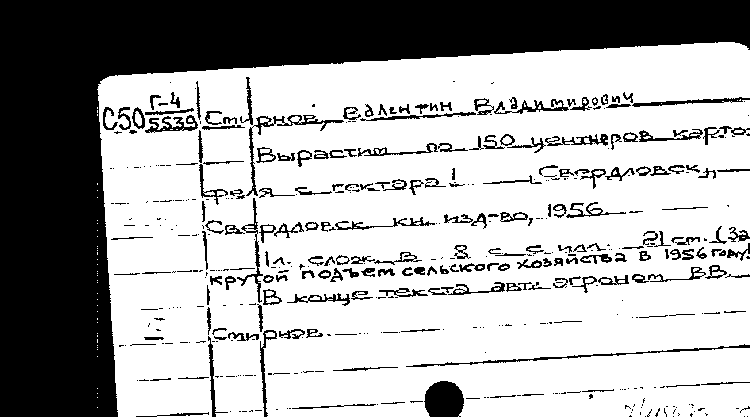 Г-4
С50 5539 Смирнов, Валентин Владимирович
Вырастим по 150 центнеров карто-
феля с гектара! [Свердловск],
Свердловск. кн. изд-во, 1956.
1 л. слож. в 8 с. с илл. 21 см. (За
крутой подъем сельского хозяйства в 1956 году!
В конце текста авт: агроном В.В.
Смирнов.